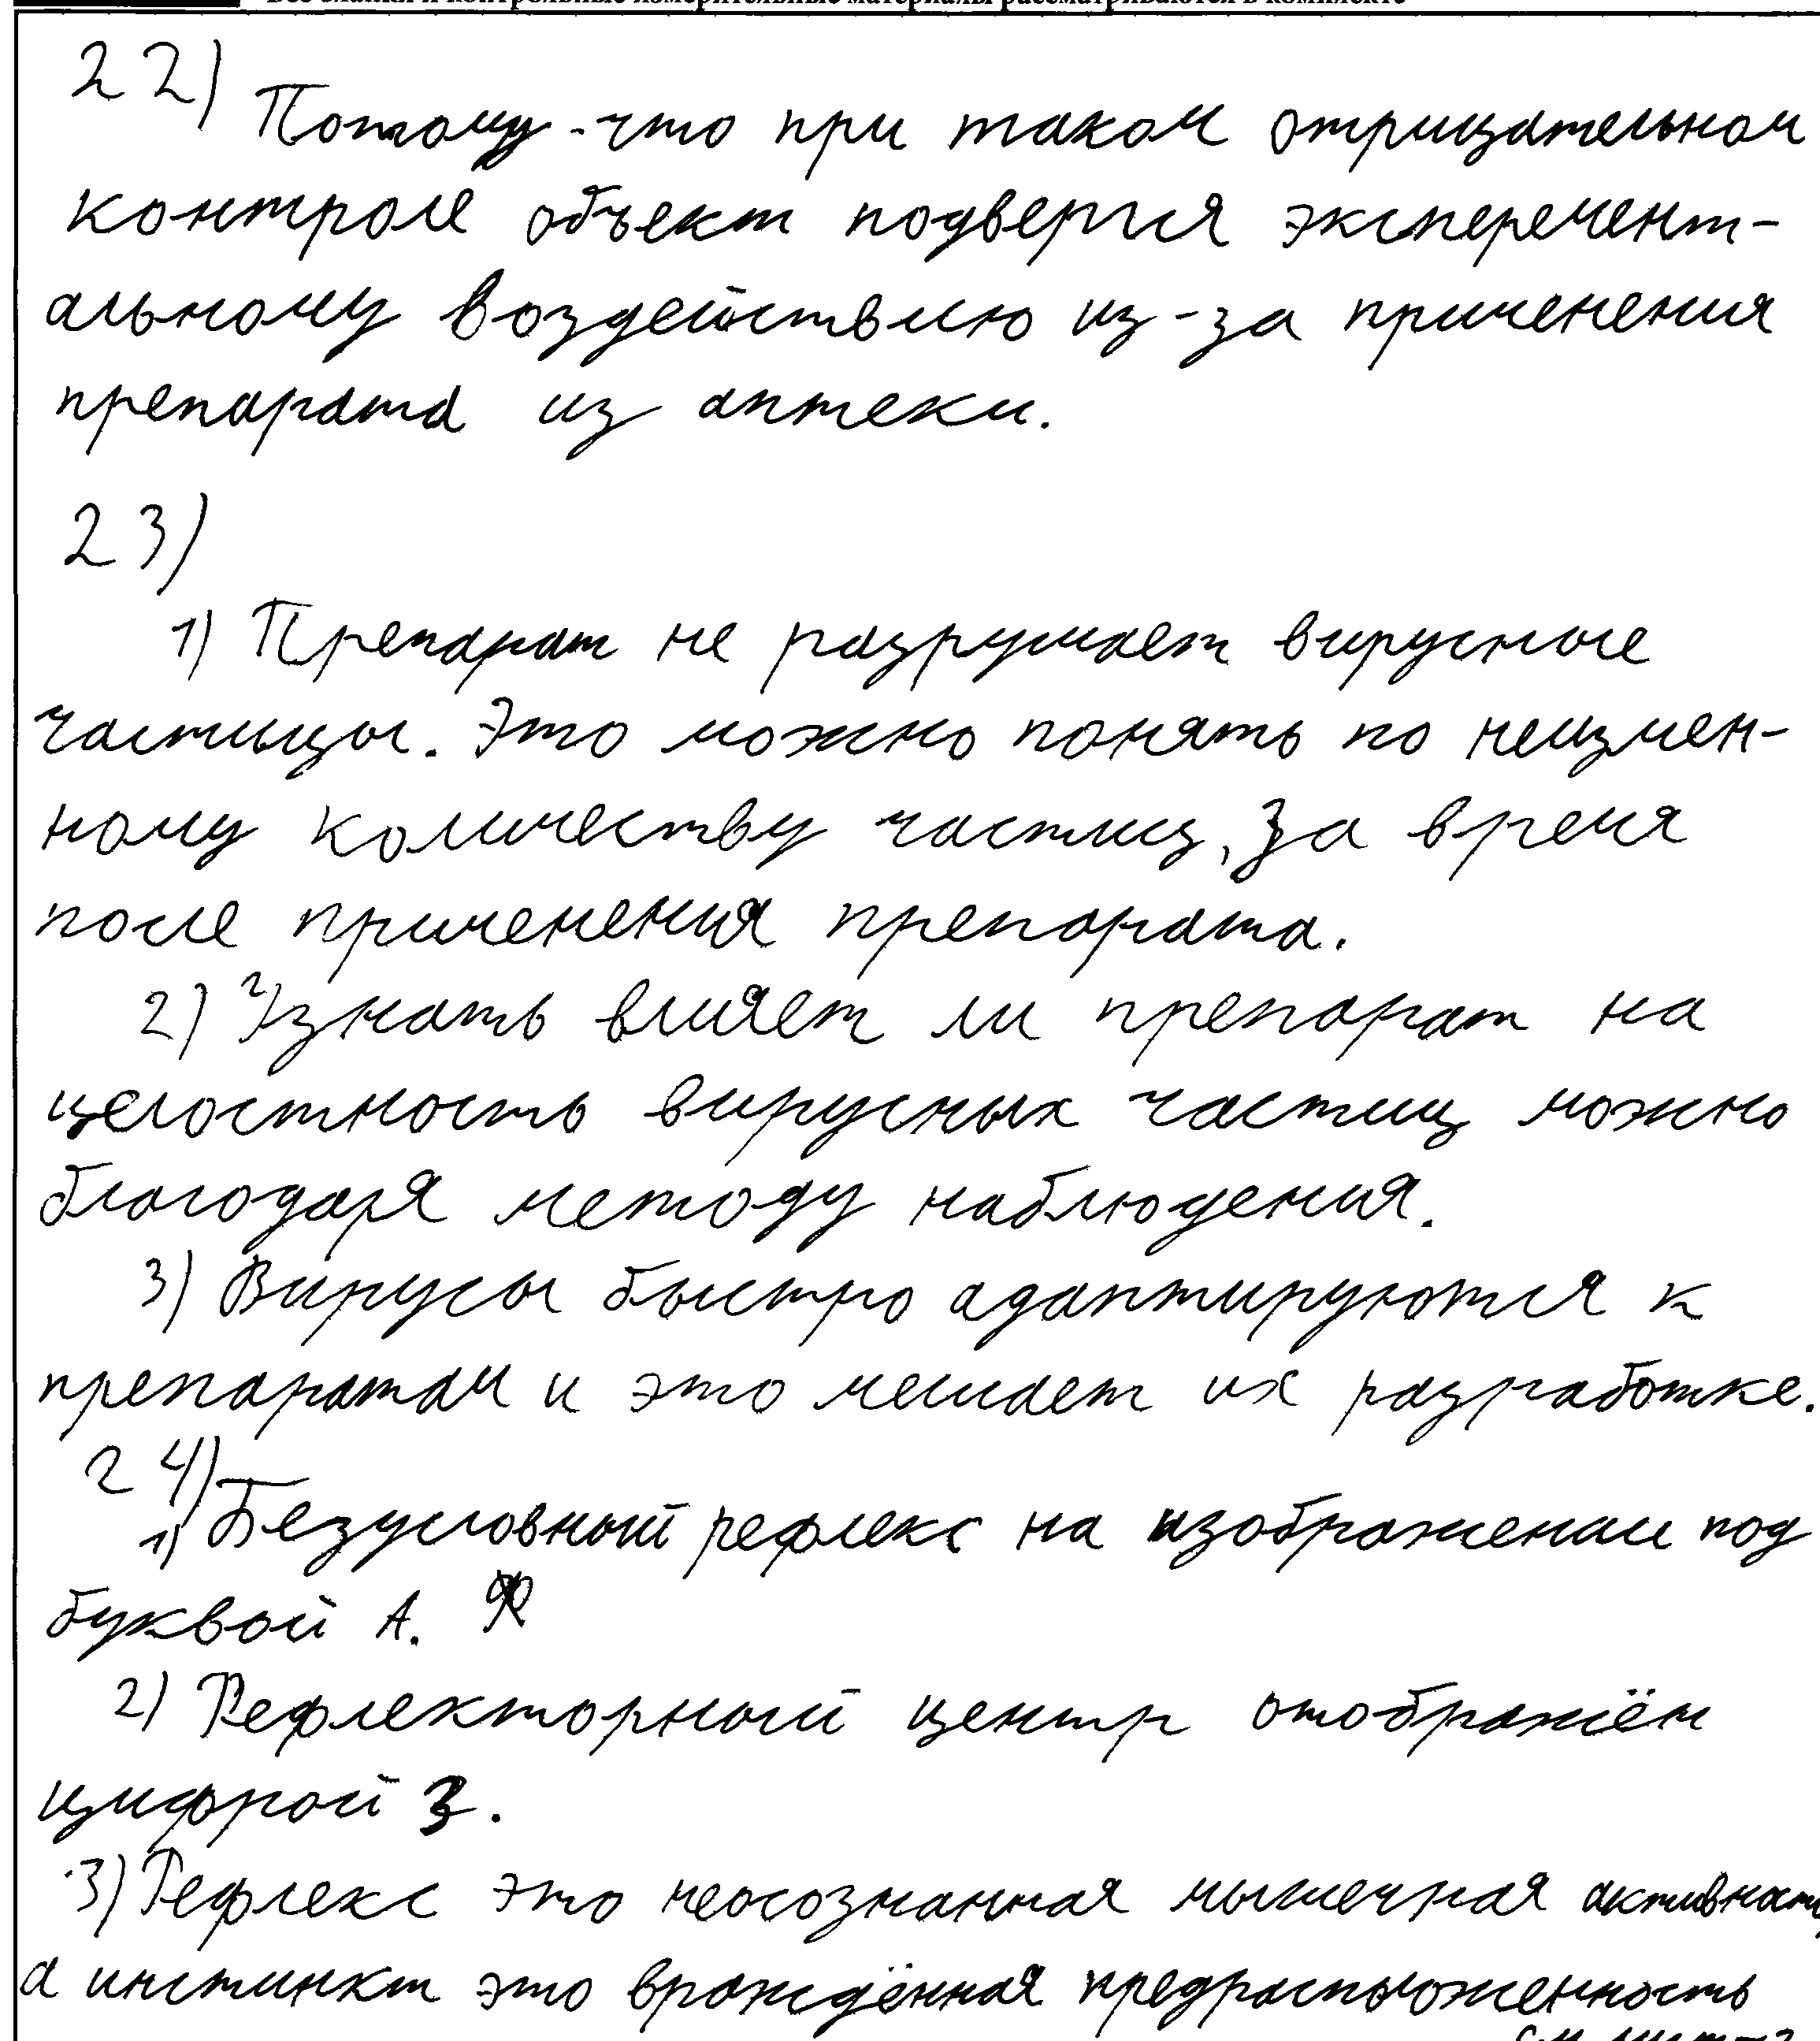 Все бланки и контрольные измерительные материалы рассматриваются в комплекте
22) Потому-что при таком отрицательном
контроле объект подвергся эксперемент-
альному воздействию из-за применения
препарата из аптеки.
23)
1) Препарат не разрушает вирусные
частицы. Это можно понять по неизмен-
ному количеству частиц, за время
после применения препарата.
2) Узнать влияет ли препарат на
целостность вирусных частиц можно
благодаря методу наблюдения.
3) Вирусы быстро адаптируются к
препаратам и это мешает их разработке.
24)
1) Безусловный рефлекс на изображении под
буквой А.
2) Рефлекторный центр отображён
цифрой 3.
3) Рефлекс это неосознанная мышечная активность,
а инстинкт это врождённая предрасположенность